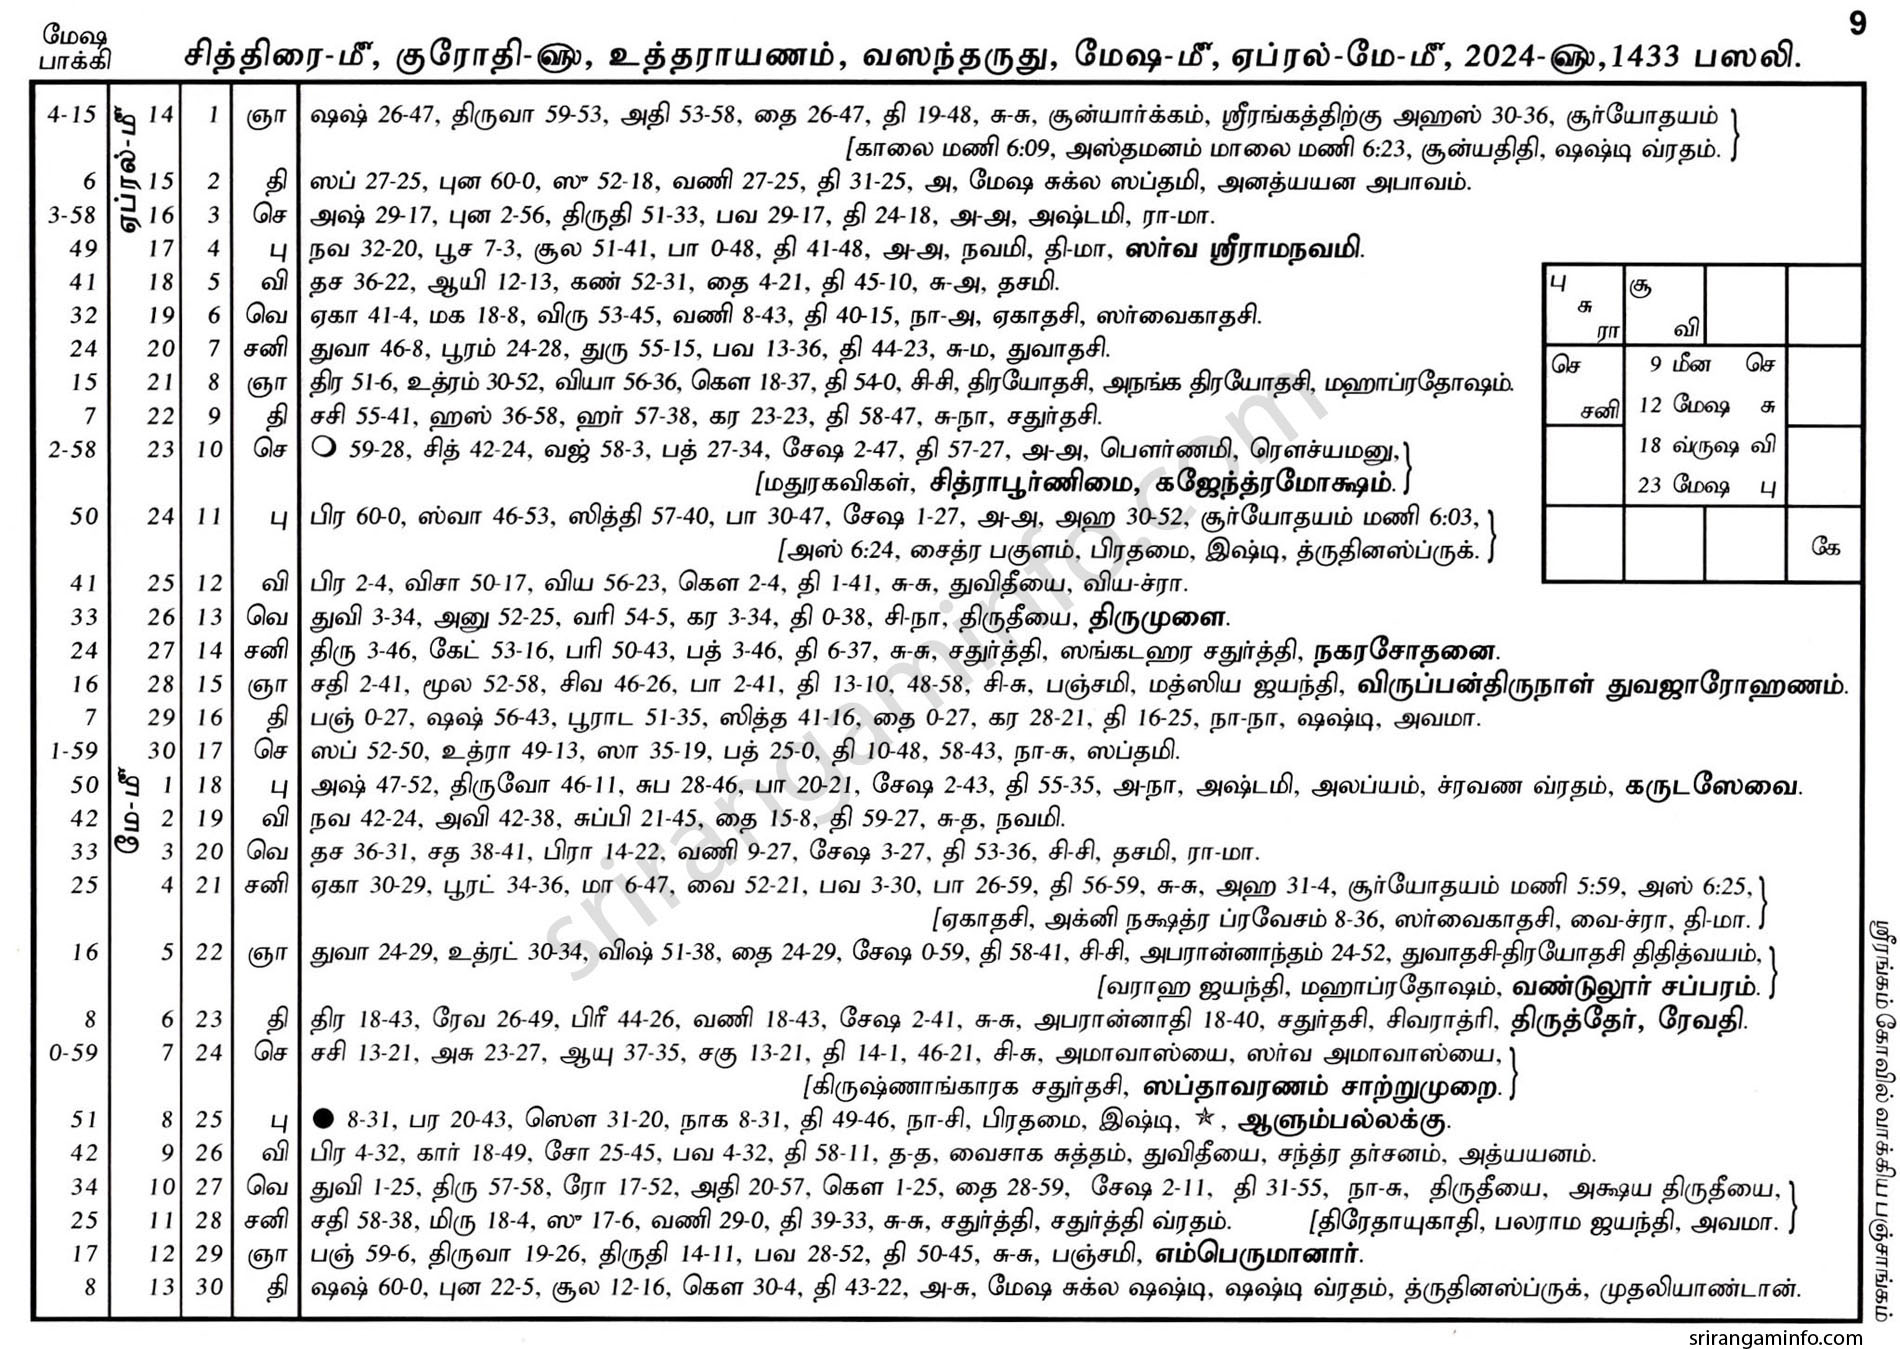 9
மேஷ
பாக்கி
சித்திரை-மீ, குரோதி-௵, உத்தராயணம், வஸந்தருது, மேஷ-மீ, ஏப்ரல்-மே-மீ, 2024-௵, 1433 பஸலி.
ஏப்ரல்-மீ
4-15 14 1 ஞா ஷஷ் 26-47, திருவா 59-53, அதி 53-58, தை 26-47, தி 19-48, சு-சு, சூன்யார்க்கம், ஸ்ரீரங்கத்திற்கு அஹஸ் 30-36, சூர்யோதயம் }
[காலை மணி 6:09, அஸ்தமனம் மாலை மணி 6:23, சூன்யதிதி, ஷஷ்டி வ்ரதம்.
6 15 2 தி ஸப் 27-25, புன 60-0, ஸு 52-18, வணி 27-25, தி 31-25, அ, மேஷ சுக்ல ஸப்தமி, அனத்யயன அபாவம்.
3-58 16 3 செ அஷ் 29-17, புன 2-56, திருதி 51-33, பவ 29-17, தி 24-18, அ-அ, அஷ்டமி, ரா-மா.
49 17 4 பு நவ 32-20, பூச 7-3, சூல 51-41, பா 0-48, தி 41-48, அ-அ, நவமி, தி-மா, ஸர்வ ஸ்ரீராமநவமி.
41 18 5 வி தச 36-22, ஆயி 12-13, கண் 52-31, தை 4-21, தி 45-10, சு-அ, தசமி.
32 19 6 வெ ஏகா 41-4, மக 18-8, விரு 53-45, வணி 8-43, தி 40-15, நா-அ, ஏகாதசி, ஸர்வைகாதசி.
24 20 7 சனி துவா 46-8, பூரம் 24-28, துரு 55-15, பவ 13-36, தி 44-23, சு-ம, துவாதசி.
15 21 8 ஞா திர 51-6, உத்ரம் 30-52, வியா 56-36, கௌ 18-37, தி 54-0, சி-சி, திரயோதசி, அநங்க திரயோதசி, மஹாப்ரதோஷம்.
7 22 9 தி சசி 55-41, ஹஸ் 36-58, ஹர் 57-38, கர 23-23, தி 58-47, சு-நா, சதுர்தசி.
2-58 23 10 செ ❍ 59-28, சித் 42-24, வஜ் 58-3, பத் 27-34, சேஷ 2-47, தி 57-27, அ-அ, பௌர்ணமி, ரௌச்யமனு, }
[மதுரகவிகள், சித்ராபூர்ணிமை, கஜேந்த்ரமோக்ஷம்.
50 24 11 பு பிர 60-0, ஸ்வா 46-53, ஸித்தி 57-40, பா 30-47, சேஷ 1-27, அ-அ, அஹ 30-52, சூர்யோதயம் மணி 6:03, }
[அஸ் 6:24, சைத்ர பகுளம், பிரதமை, இஷ்டி, த்ருதினஸ்ப்ருக்.
41 25 12 வி பிர 2-4, விசா 50-17, விய 56-23, கௌ 2-4, தி 1-41, சு-சு, துவிதீயை, விய-ச்ரா.
33 26 13 வெ துவி 3-34, அனு 52-25, வரி 54-5, கர 3-34, தி 0-38, சி-நா, திருதீயை, திருமுளை.
24 27 14 சனி திரு 3-46, கேட் 53-16, பரி 50-43, பத் 3-46, தி 6-37, சு-சு, சதுர்த்தி, ஸங்கடஹர சதுர்த்தி, நகரசோதனை.
16 28 15 ஞா சதி 2-41, மூல 52-58, சிவ 46-26, பா 2-41, தி 13-10, 48-58, சி-சு, பஞ்சமி, மத்ஸிய ஜயந்தி, விருப்பன்திருநாள் துவஜாரோஹணம்.
7 29 16 தி பஞ் 0-27, ஷஷ் 56-43, பூராட 51-35, ஸித்த 41-16, தை 0-27, கர 28-21, தி 16-25, நா-நா, ஷஷ்டி, அவமா.
1-59 30 17 செ ஸப் 52-50, உத்ரா 49-13, ஸா 35-19, பத் 25-0, தி 10-48, 58-43, நா-சு, ஸப்தமி.
மே-மீ
50 1 18 பு அஷ் 47-52, திருவோ 46-11, சுப 28-46, பா 20-21, சேஷ 2-43, தி 55-35, அ-நா, அஷ்டமி, அலப்யம், ச்ரவண வ்ரதம், கருடஸேவை.
42 2 19 வி நவ 42-24, அவி 42-38, சுப்பி 21-45, தை 15-8, தி 59-27, சு-த, நவமி.
33 3 20 வெ தச 36-31, சத 38-41, பிரா 14-22, வணி 9-27, சேஷ 3-27, தி 53-36, சி-சி, தசமி, ரா-மா.
25 4 21 சனி ஏகா 30-29, பூரட் 34-36, மா 6-47, வை 52-21, பவ 3-30, பா 26-59, தி 56-59, சு-சு, அஹ 31-4, சூர்யோதயம் மணி 5:59, அஸ் 6:25, }
[ஏகாதசி, அக்னி நக்ஷத்ர ப்ரவேசம் 8-36, ஸர்வைகாதசி, வை-ச்ரா, தி-மா.
16 5 22 ஞா துவா 24-29, உத்ரட் 30-34, விஷ் 51-38, தை 24-29, சேஷ 0-59, தி 58-41, சி-சி, அபரான்னாந்தம் 24-52, துவாதசி-திரயோதசி திதித்வயம், }
[வராஹ ஜயந்தி, மஹாப்ரதோஷம், வண்டுலூர் சப்பரம்.
8 6 23 தி திர 18-43, ரேவ 26-49, பிரீ 44-26, வணி 18-43, சேஷ 2-41, சு-சு, அபரான்னாதி 18-40, சதுர்தசி, சிவராத்ரி, திருத்தேர், ரேவதி.
0-59 7 24 செ சசி 13-21, அசு 23-27, ஆயு 37-35, சகு 13-21, தி 14-1, 46-21, சி-சு, அமாவாஸ்யை, ஸர்வ அமாவாஸ்யை, }
[கிருஷ்ணாங்காரக சதுர்தசி, ஸப்தாவரணம் சாற்றுமுறை.
51 8 25 பு ● 8-31, பர 20-43, ஸௌ 31-20, நாக 8-31, தி 49-46, நா-சி, பிரதமை, இஷ்டி, ☆, ஆளும்பல்லக்கு.
42 9 26 வி பிர 4-32, கார் 18-49, சோ 25-45, பவ 4-32, தி 58-11, த-த, வைசாக சுத்தம், துவிதீயை, சந்த்ர தர்சனம், அத்யயனம்.
34 10 27 வெ துவி 1-25, திரு 57-58, ரோ 17-52, அதி 20-57, கௌ 1-25, தை 28-59, சேஷ 2-11, தி 31-55, நா-சு, திருதீயை, அக்ஷய திருதீயை, }
25 11 28 சனி சதி 58-38, மிரு 18-4, ஸு 17-6, வணி 29-0, தி 39-33, சு-சு, சதுர்த்தி, சதுர்த்தி வ்ரதம். [திரேதாயுகாதி, பலராம ஜயந்தி, அவமா.
17 12 29 ஞா பஞ் 59-6, திருவா 19-26, திருதி 14-11, பவ 28-52, தி 50-45, சு-சு, பஞ்சமி, எம்பெருமானார்.
8 13 30 தி ஷஷ் 60-0, புன 22-5, சூல 12-16, கௌ 30-4, தி 43-22, அ-சு, மேஷ சுக்ல ஷஷ்டி, ஷஷ்டி வ்ரதம், த்ருதினஸ்ப்ருக், முதலியாண்டான்.
பு சு ரா
சூ வி
செ சனி
9 மீன செ
12 மேஷ சு
18 வ்ருஷ வி
23 மேஷ பு
கே
ஸ்ரீரங்கம் கோவில் வாக்கிய பஞ்சாங்கம்
srirangaminfo.com
srirangaminfo.com